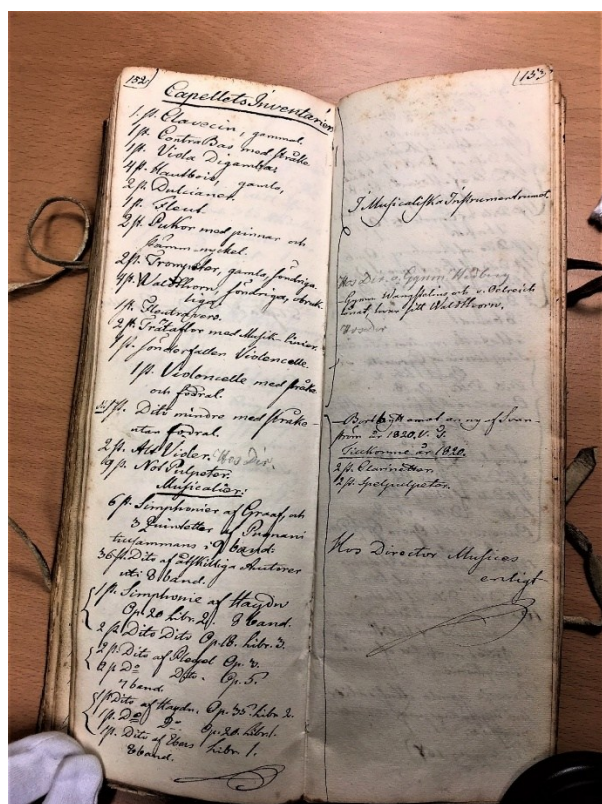 152.
Capellets Inventarier.
1. st. Clavecin, gammal.
1 st. ContraBas med stråke
1 st. Viola Digamba,
4 st. Hautbois, gamla,
2 st. Dulcianer.
1 st. Fleut.
2 st. Pukor med pinnar och
nyckel.
2 st. Trompeter, gamla, söndriga.
4 st. Waldthorn, söndriga, obruk-
liga.
1 st. Fleutravers.
2 st. Trätaflor med Musik-linier.
1 st. sönderfallen Violoncelle.
1 st. Violoncelle med stråke
och fodral.
1 st. Dito mindre med stråke
utan fodral.
2 st. Alt Violer. Hos Dir.
9 st. Not Pulpeter.
Musicalier:
6 st. Simphonier af Graaf, och
3 Quintetter af Pugnani
tillsammans i 9 band.
36 st. Dito af åtskilliga Auctorer
uti 8 band.
1 st. Simphonie af Haydn
Op. 20 Libr. 2. 9 band.
2 st. Dito Dito Op. 18. Libr. 3.
2 st. Dito af Pleyel Op. 3.
Do Dito. Op. 5.
7 band
1 st. Dito af Haydn. Op. 35. Libr. 2.
1 st. Do Do Op. 20. Libr. 1.
1 st. Dito af Ebers Libr. 1.
8 band.
153
I Musicaliska Instrumentrumet.
Hos Dir. o. Gymn. Widberg
Gymn. och v.
lånat, hvar sitt Waldthorn.
Hos Dir
Bortbytt emot en ny af Svan-
ström år 1820, V. G.
Tillkomne år 1820.
2 st. Clarinetter.
2 st. Spelpulpeter.
Hos Director Musices
enligt